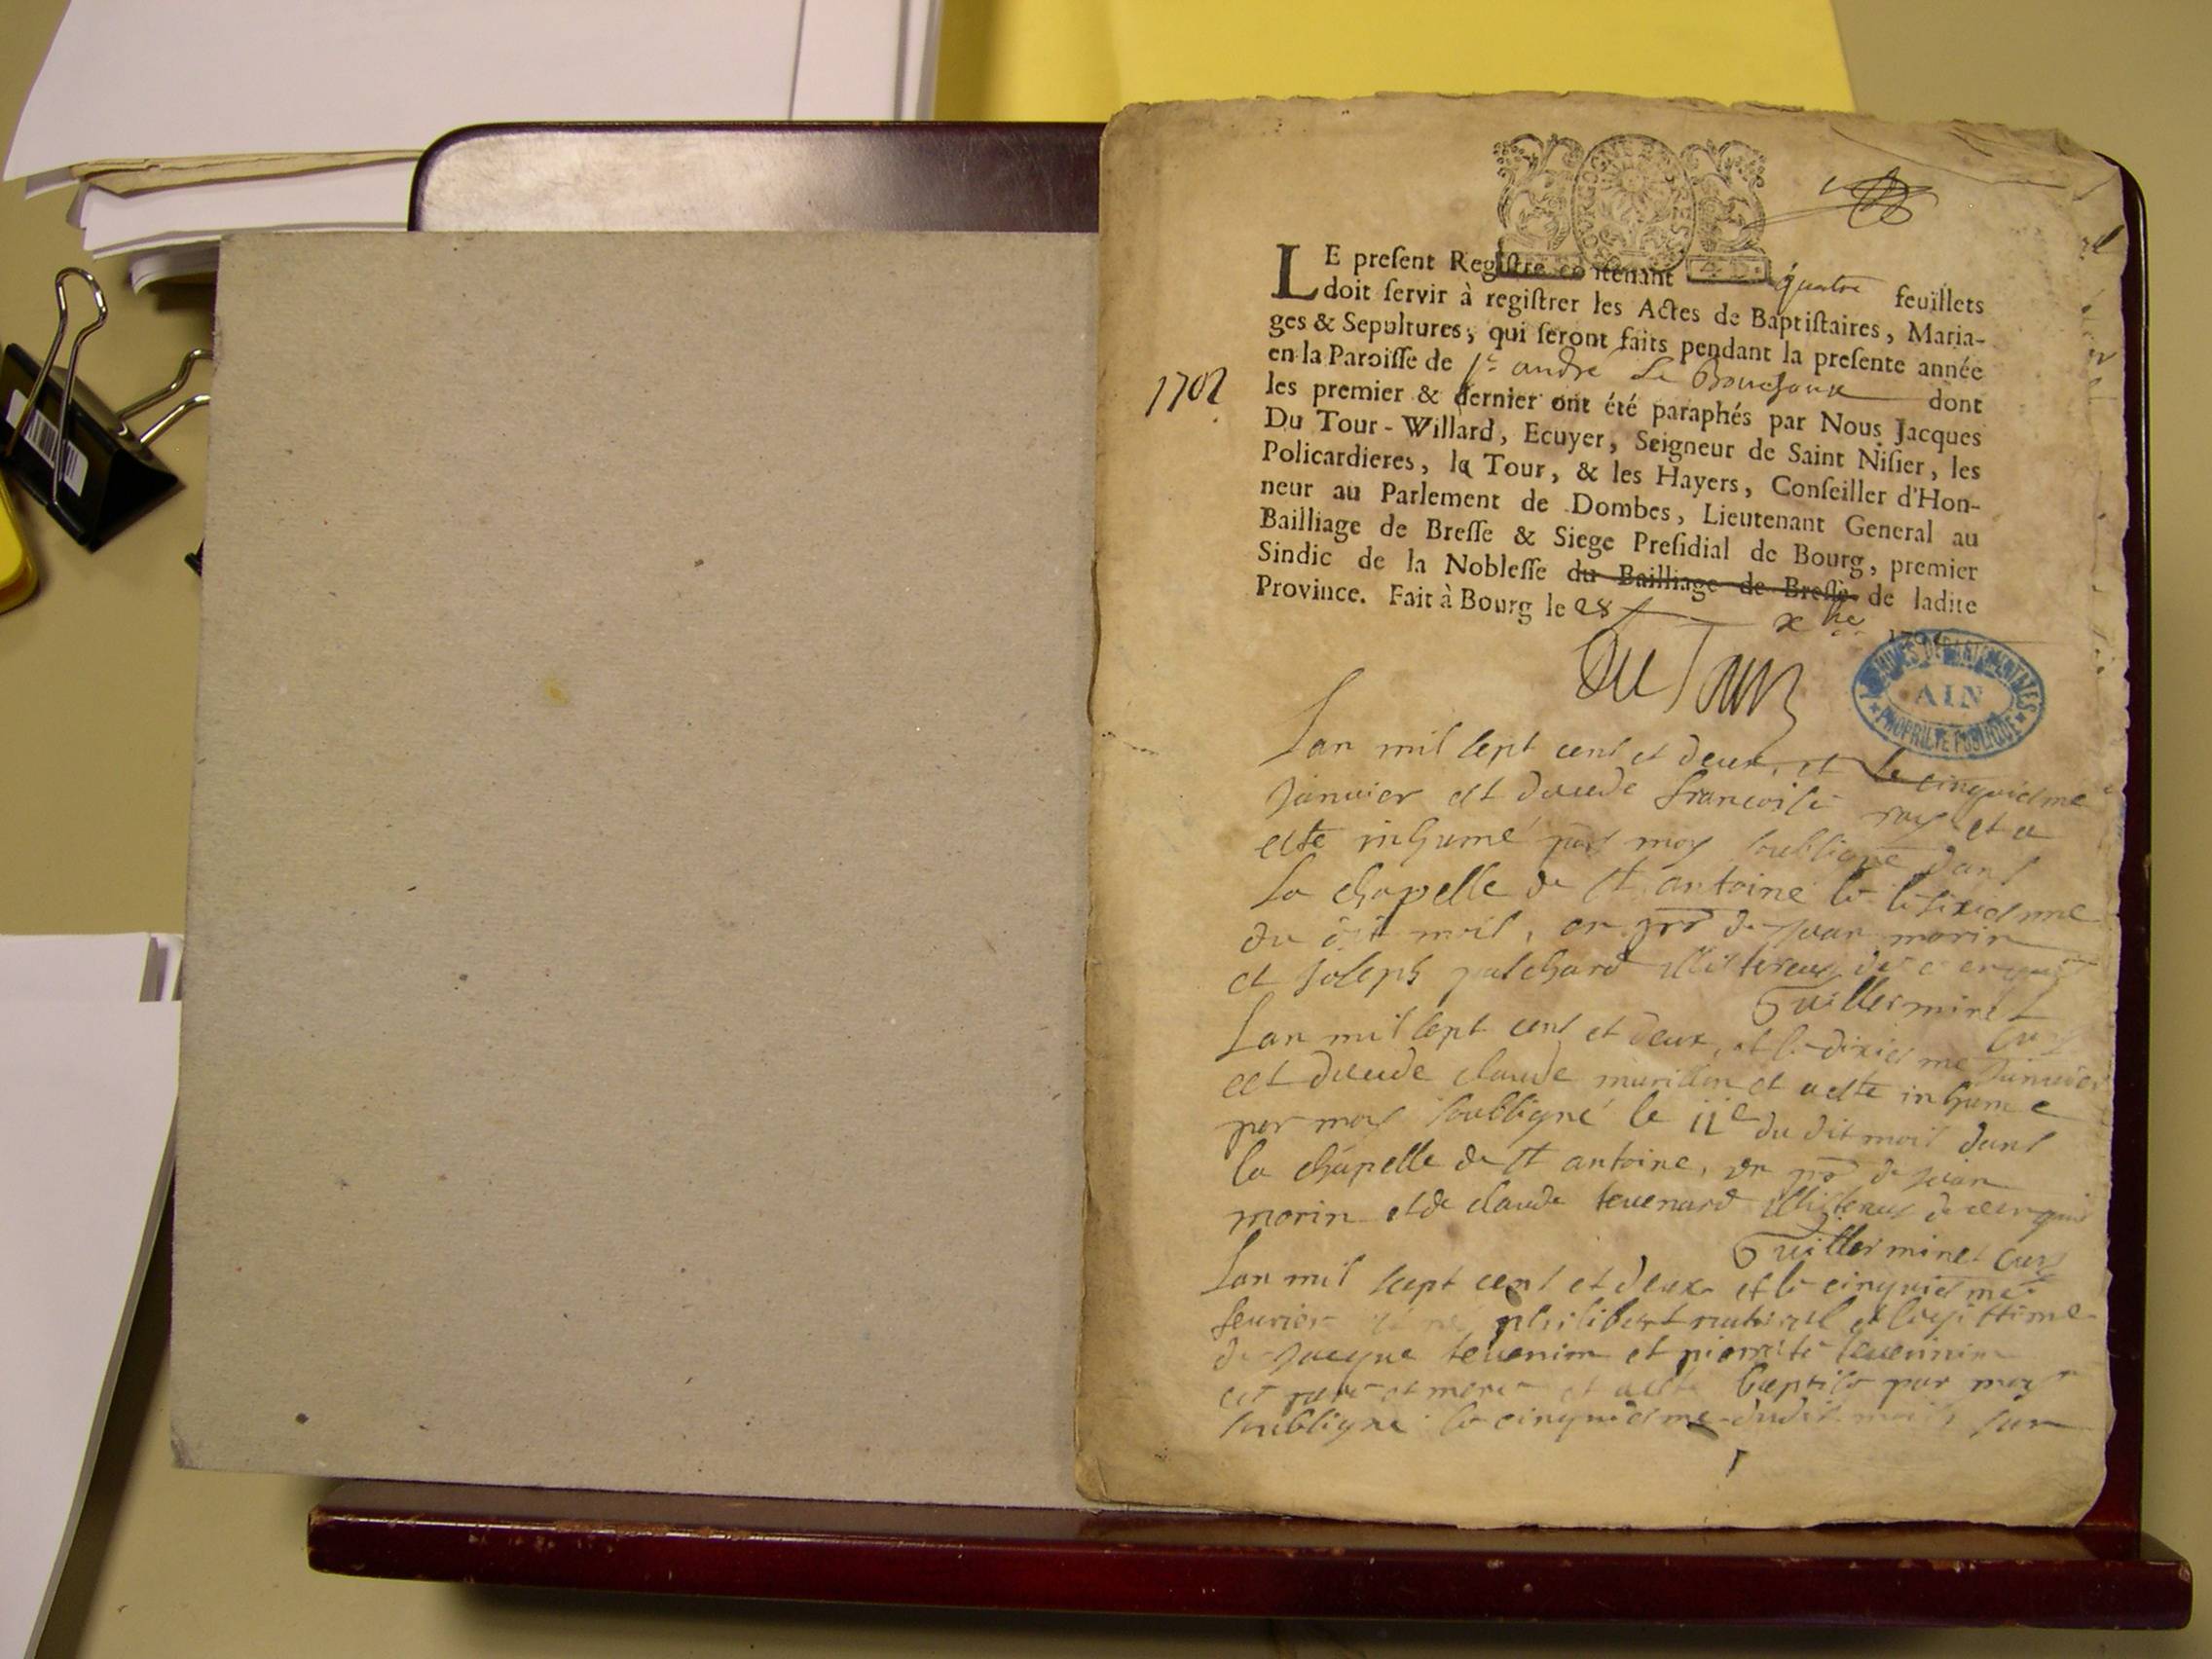 LE preſent Regiſtre contenant quatre feuillets
doit ſervir à regiſtrer les Actes de Baptiſtaires, Maria-
ges & Sepultures, qui ſeront faits pendant la preſente année
en la Paroiſſe de St andre Le Bouchoux dont
1702
les premier & dernier ont été paraphés par Nous Jacques
Du Tour-Willard, Ecuyer, Seigneur de Saint Niſier, les
Policardieres, la Tour, & les Hayers, Conſeiller d'Hon-
neur au Parlement de Dombes, Lieutenant General au
Bailliage de Breſſe & Siege Preſidial de Bourg, premier
Sindic de la Nobleſſe du Bailliage de Breſſe de ladite
Province. Fait à Bourg le 28 xbre
Du Tour
ARCHIVES DEPARTEMENTALES
AIN
PROPRIETE PUBLIQUE
Lan mil sept cent et deux, et le cinquiesme
Janvier est decede francoise et a
este inhumé par moy soubsigné dans
La chapelle de st antoine le sixiesme
du dit mois, en de Jean morin
et Joseph illiteres de ce enquis
Guillerminet
curé
Lan mil sept cent et deux, et le dixiesme Janvier
est decede claude et a este inhumé
par moy soubsigné le 11e du dit mois dans
la chapelle de st antoine, en de Jean
morin et de claude tevenard illiteres de ce enquis
Guillerminet curé
Lan mil sept cent et deux et le cinquiesme
fevrier philibert naturel et legittime
de Jacque tevenin et pierrete
et a esté baptisé par moy
soubsigne le cinquiesme dudit mois